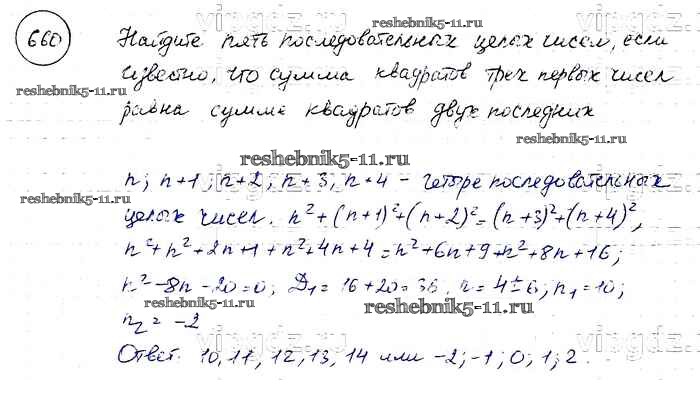 660
Найдите пять последовательных целых чисел, если
известно, что сумма квадратов трех первых чисел
равна сумме квадратов двух последних
n; n+1; n+2; n+3; n+4 – четыре последовательных
целых чисел. n²+(n+1)²+(n+2)²=(n+3)²+(n+4)²,
n²+n²+2n+1+n²+4n+4=n²+6n+9+n²+8n+16;
n²-8n-20=0; D₁=16+20=36. n=4±6; n₁=10;
n₂=-2
Ответ. 10, 11, 12, 13, 14 или -2; -1; 0; 1; 2.
reshebnik5-11.ru
reshebnik5-11.ru
reshebnik5-11.ru
reshebnik5-11.ru
reshebnik5-11.ru
reshebnik5-11.ru